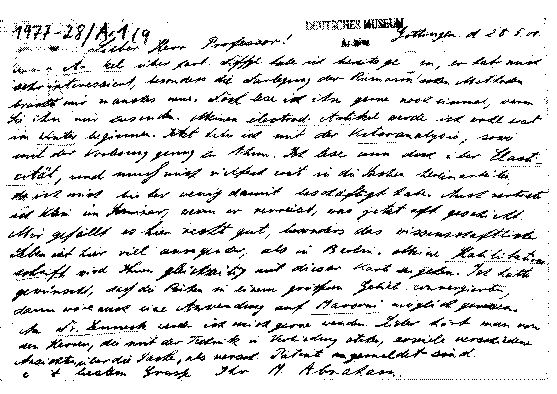 1977-28/A,1(9
DEUTSCHES MUSEUM
Göttingen d 28.5.01
Lieber Herr Professor!
habe ich heute , er hat mich
sehr interessiert, besonders die Darlegung der Riemann'schen Methoden
bringt mir manches neue. Doch lese ich ihn gerne noch einmal, wenn
Sie ihn mir senden. Meinen electrod. Artikel werde ich wohl erst
im Winter beginnen. Jetzt habe ich mit der Vectoranalysis, sowie
mit der Vorlesung genug zu thun. Ich lese nun doch über Elasti-
cität, und muss mich vielfach erst in die Sachen hereinarbeiten,
da ich mich bisher wenig damit beschäftigt habe. Auch vertrete
ich Klein im Seminar, wenn er verreist, was jetzt oft geschieht.
Mir gefällt es hier recht gut, besonders das wissenschaftliche
Leben ist hier viel anregender, als in Berlin. Meine Habilitations-
schrift wird Ihnen gleichzeitig mit dieser Karte zugehen. Ich hatte
gewünscht, daß die Reihen in einem größeren Gebiet convergierten,
dann wäre auch eine Anwendung auf Marconi möglich gewesen.
An Dr. werde ich mich gerne wenden. Leider hört man von
den Herren, die mit der Technik in Verbindung stehen, soviele verschiedene
Ansichten über die Sache, als versch. Patente angemeldet sind.
besten Gruss Ihr M. Abraham.